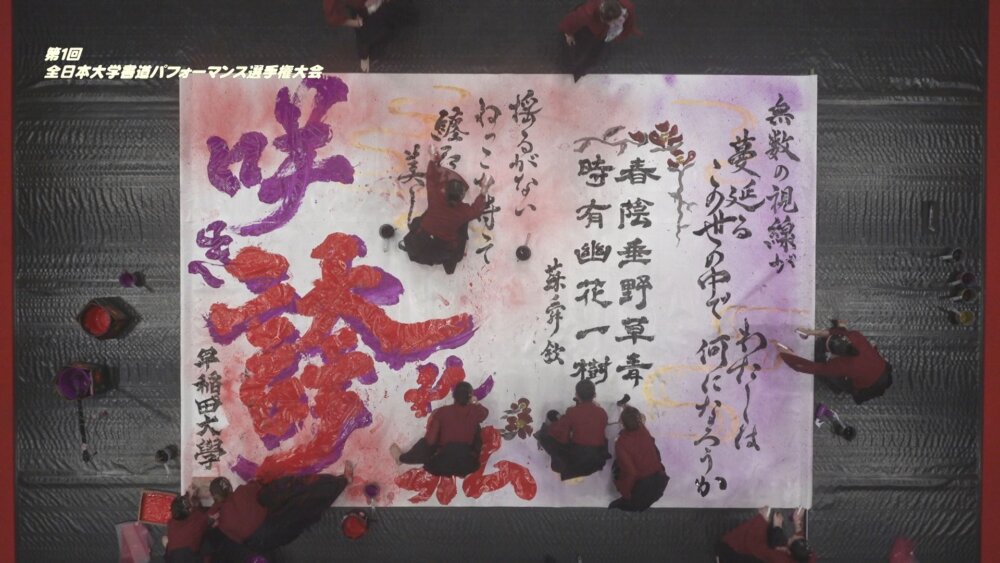 第1回
全日本大学書道パフォーマンス選手権大会
無数の視線が
蔓延る
この世の中で
わたしは
何になろうか
春陰垂野草青
時有幽花一樹
蘇舜欽
揺るがない
ねっこを持って
美
咲き
誇
早稲田大學